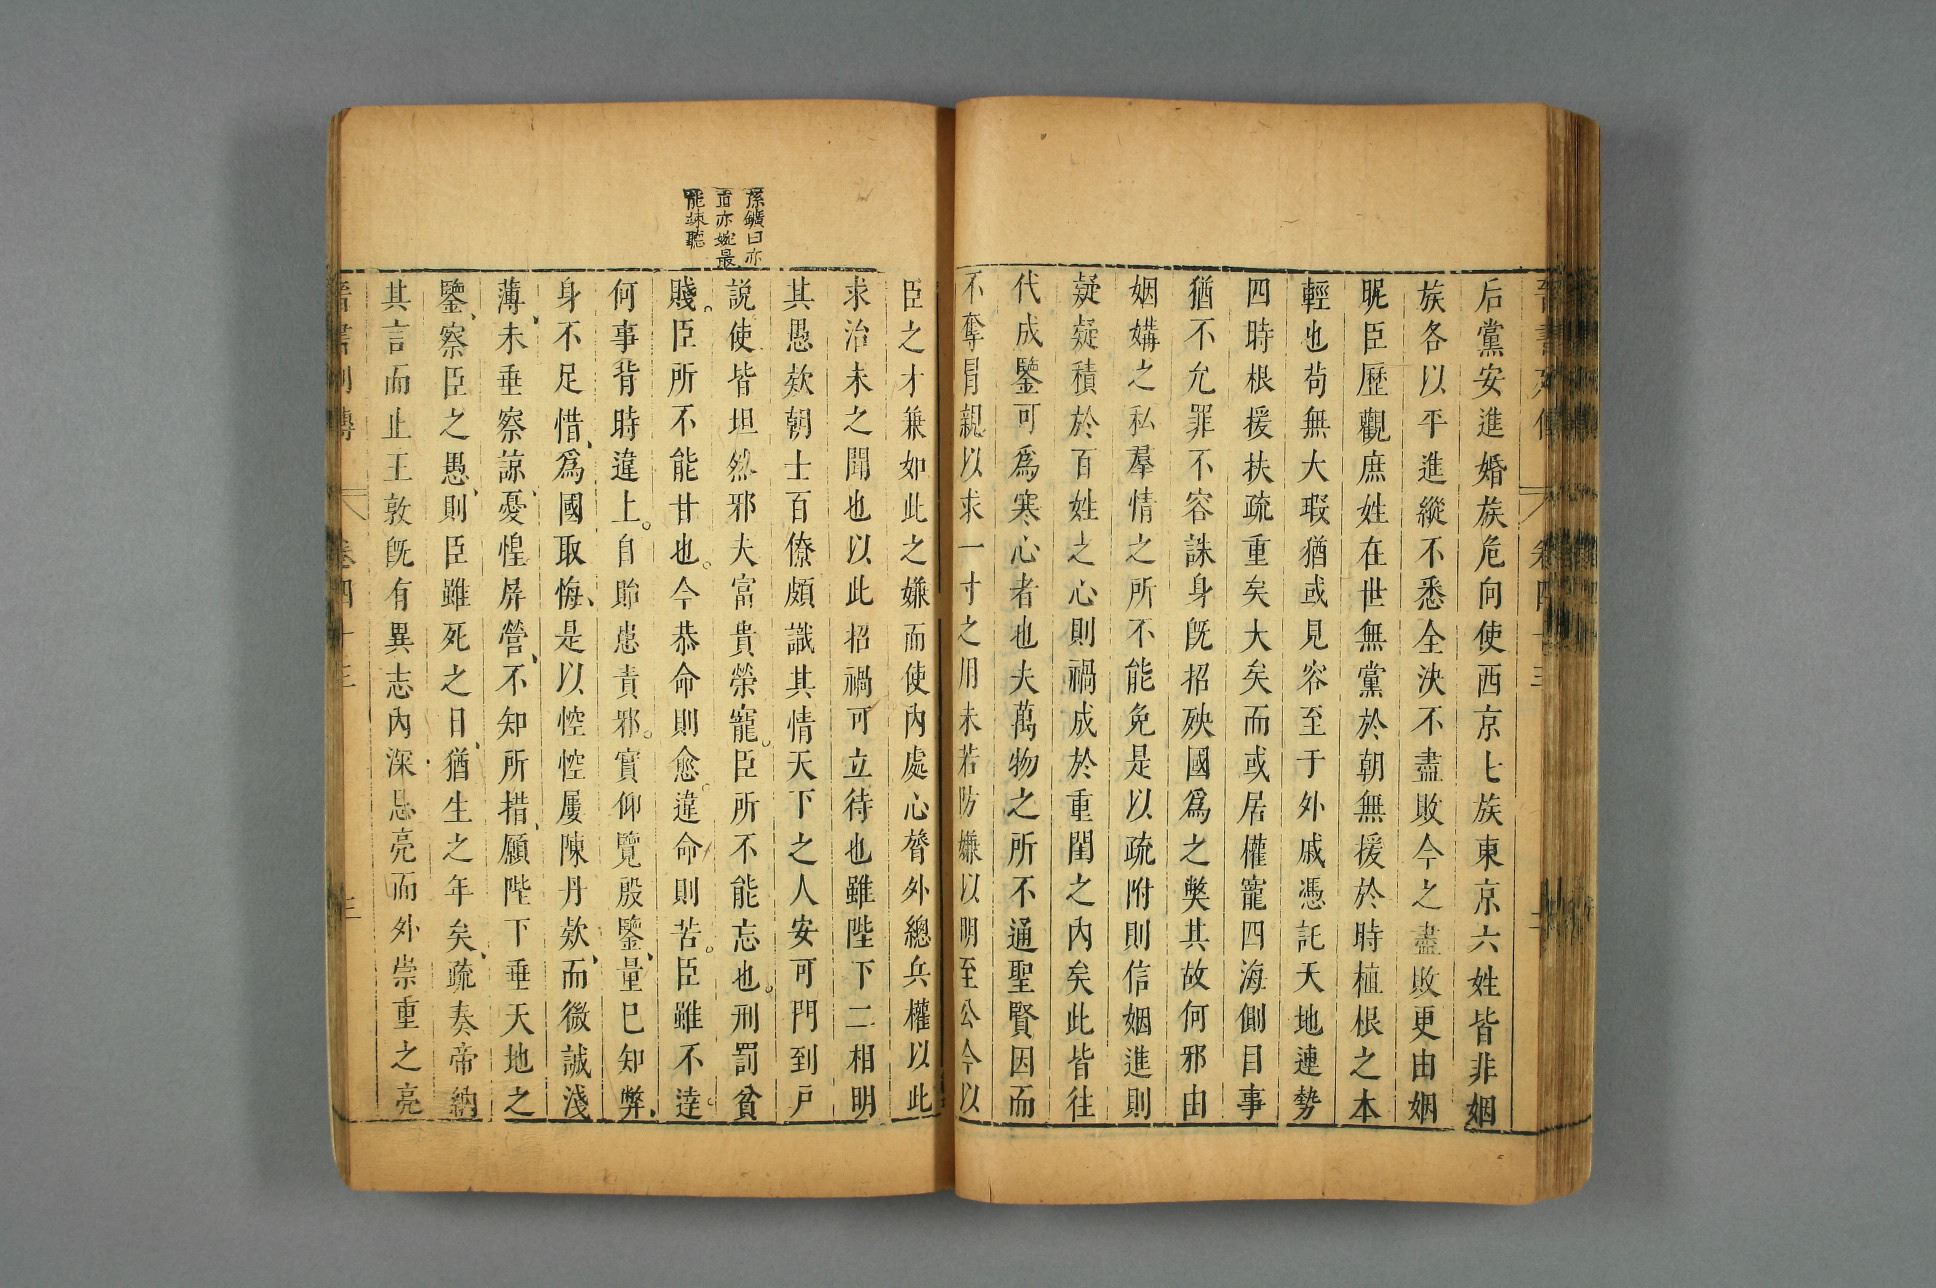 晉書列傳 卷四十三 二
后黨安進婚族危向使西京七族東京六姓皆非姻
族各以平進縱不悉全決不盡敗今之盡敗更由姻
昵臣歷觀庶姓在世無黨於朝無援於時植根之本
輕也苟無大瑕猶或見容至于外戚憑託天地連勢
四時根援扶疏重矣大矣而或居權寵四海側目事
猶不允罪不容誅身旣招殃國爲之獘其故何邪由
姻媾之私羣情之所不能免是以疏附則信姻進則
疑疑積於百姓之心則禍成於重閨之內矣此皆往
代成鑒可爲寒心者也夫萬物之所不通聖賢因而
不奪冒親以求一寸之用未若防嫌以明至公今以
臣之才兼如此之嫌而使內處心膂外總兵權以此
求治未之聞也以此招禍可立待也雖陛下二相明
其愚欵朝士百僚頗識其情天下之人安可門到戶
說使皆坦然邪夫富貴榮寵。臣所不能忘也。刑罰貧
賤。臣所不能甘也。今恭命則愈。違命則苦。臣雖不達。
何事背時違上。自貽患責邪。實仰覽殷鑒、量巳知弊、
身不足惜、爲國取悔、是以悾悾屢陳丹欵、而微誠淺
薄、未垂察諒、憂惶屏營、不知所措、願陛下垂天地之
鑒、察臣之愚、則臣雖死之日、猶生之年矣、疏奏帝納
其言而止王敦旣有異志內深忌亮而外崇重之亮
孫鑛曰亦
直亦婉最
能竦聽
晉書列傳 卷四十三 三